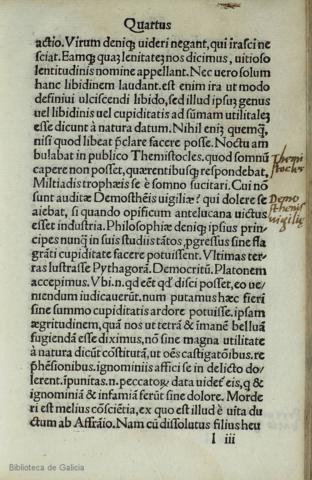 Quartus
actio. Virum deniq; uideri negant, qui irasci ne
sciat. Eamq; quaƺ lenitateƺ nos dicimus, uitioso
lentitudinis nomine appellant. Nec uero solum
hanc libidinem laudant. est enim ira ut modo
definiui ulciscendi libido, sed illud ipsuƺ genus
uel libidinis uel cupiditatis ad sūmam utilitateƺ
esse dicunt à natura datum. Nihil eniƺ quemq̄,
nisi quod libeat p̄clare facere posse. Noctu am
bulabat in publico Themistocles. quod somnū
capere non posset, quærentibusq; respondebat,
Miltiadis trophæis se è somno sucitari. Cui nō
sunt auditæ Demosthēis uigiliæ? qui dolere se
aiebat, si quando opificum antelucana uictus
esset industria. Philosophiæ deniq; ipsius prin-
cipes nunq̄ in suis studiis tātos, ꝓgressus sine fla
grāti cupiditate facere potuissent. Vltimas ter-
ras lustrasse Pythagorā. Democritū. Platonem
accepimus. Vbi.n. qd eēt qd' disci posset, eo ue-
niendum iudicauerūt. num putamus hæc fieri
sine summo cupiditatis ardore potuisse. ipsam
ægritudinem, quā nos ut tetrā & imanē belluā
fugiendā esse diximus, nō sine magna utilitate
à natura dicūt cōstitutā, ut oēs castigatōibus. re
p̄hēsionibus. ignominiis affici se in delicto do-
lerent. īpunitas.n. peccatorƺ data uidet' eis, q &
ignominiā & infamiā ferūt sine dolore. Morde
ri est melius cōsciētia, ex quo est illud è uita du
ctum ab Affrāio. Nam cū dissolutus filius heu
l iii
Themi
stocles
Demo
sthenis
uigilię
Biblioteca de Galicia